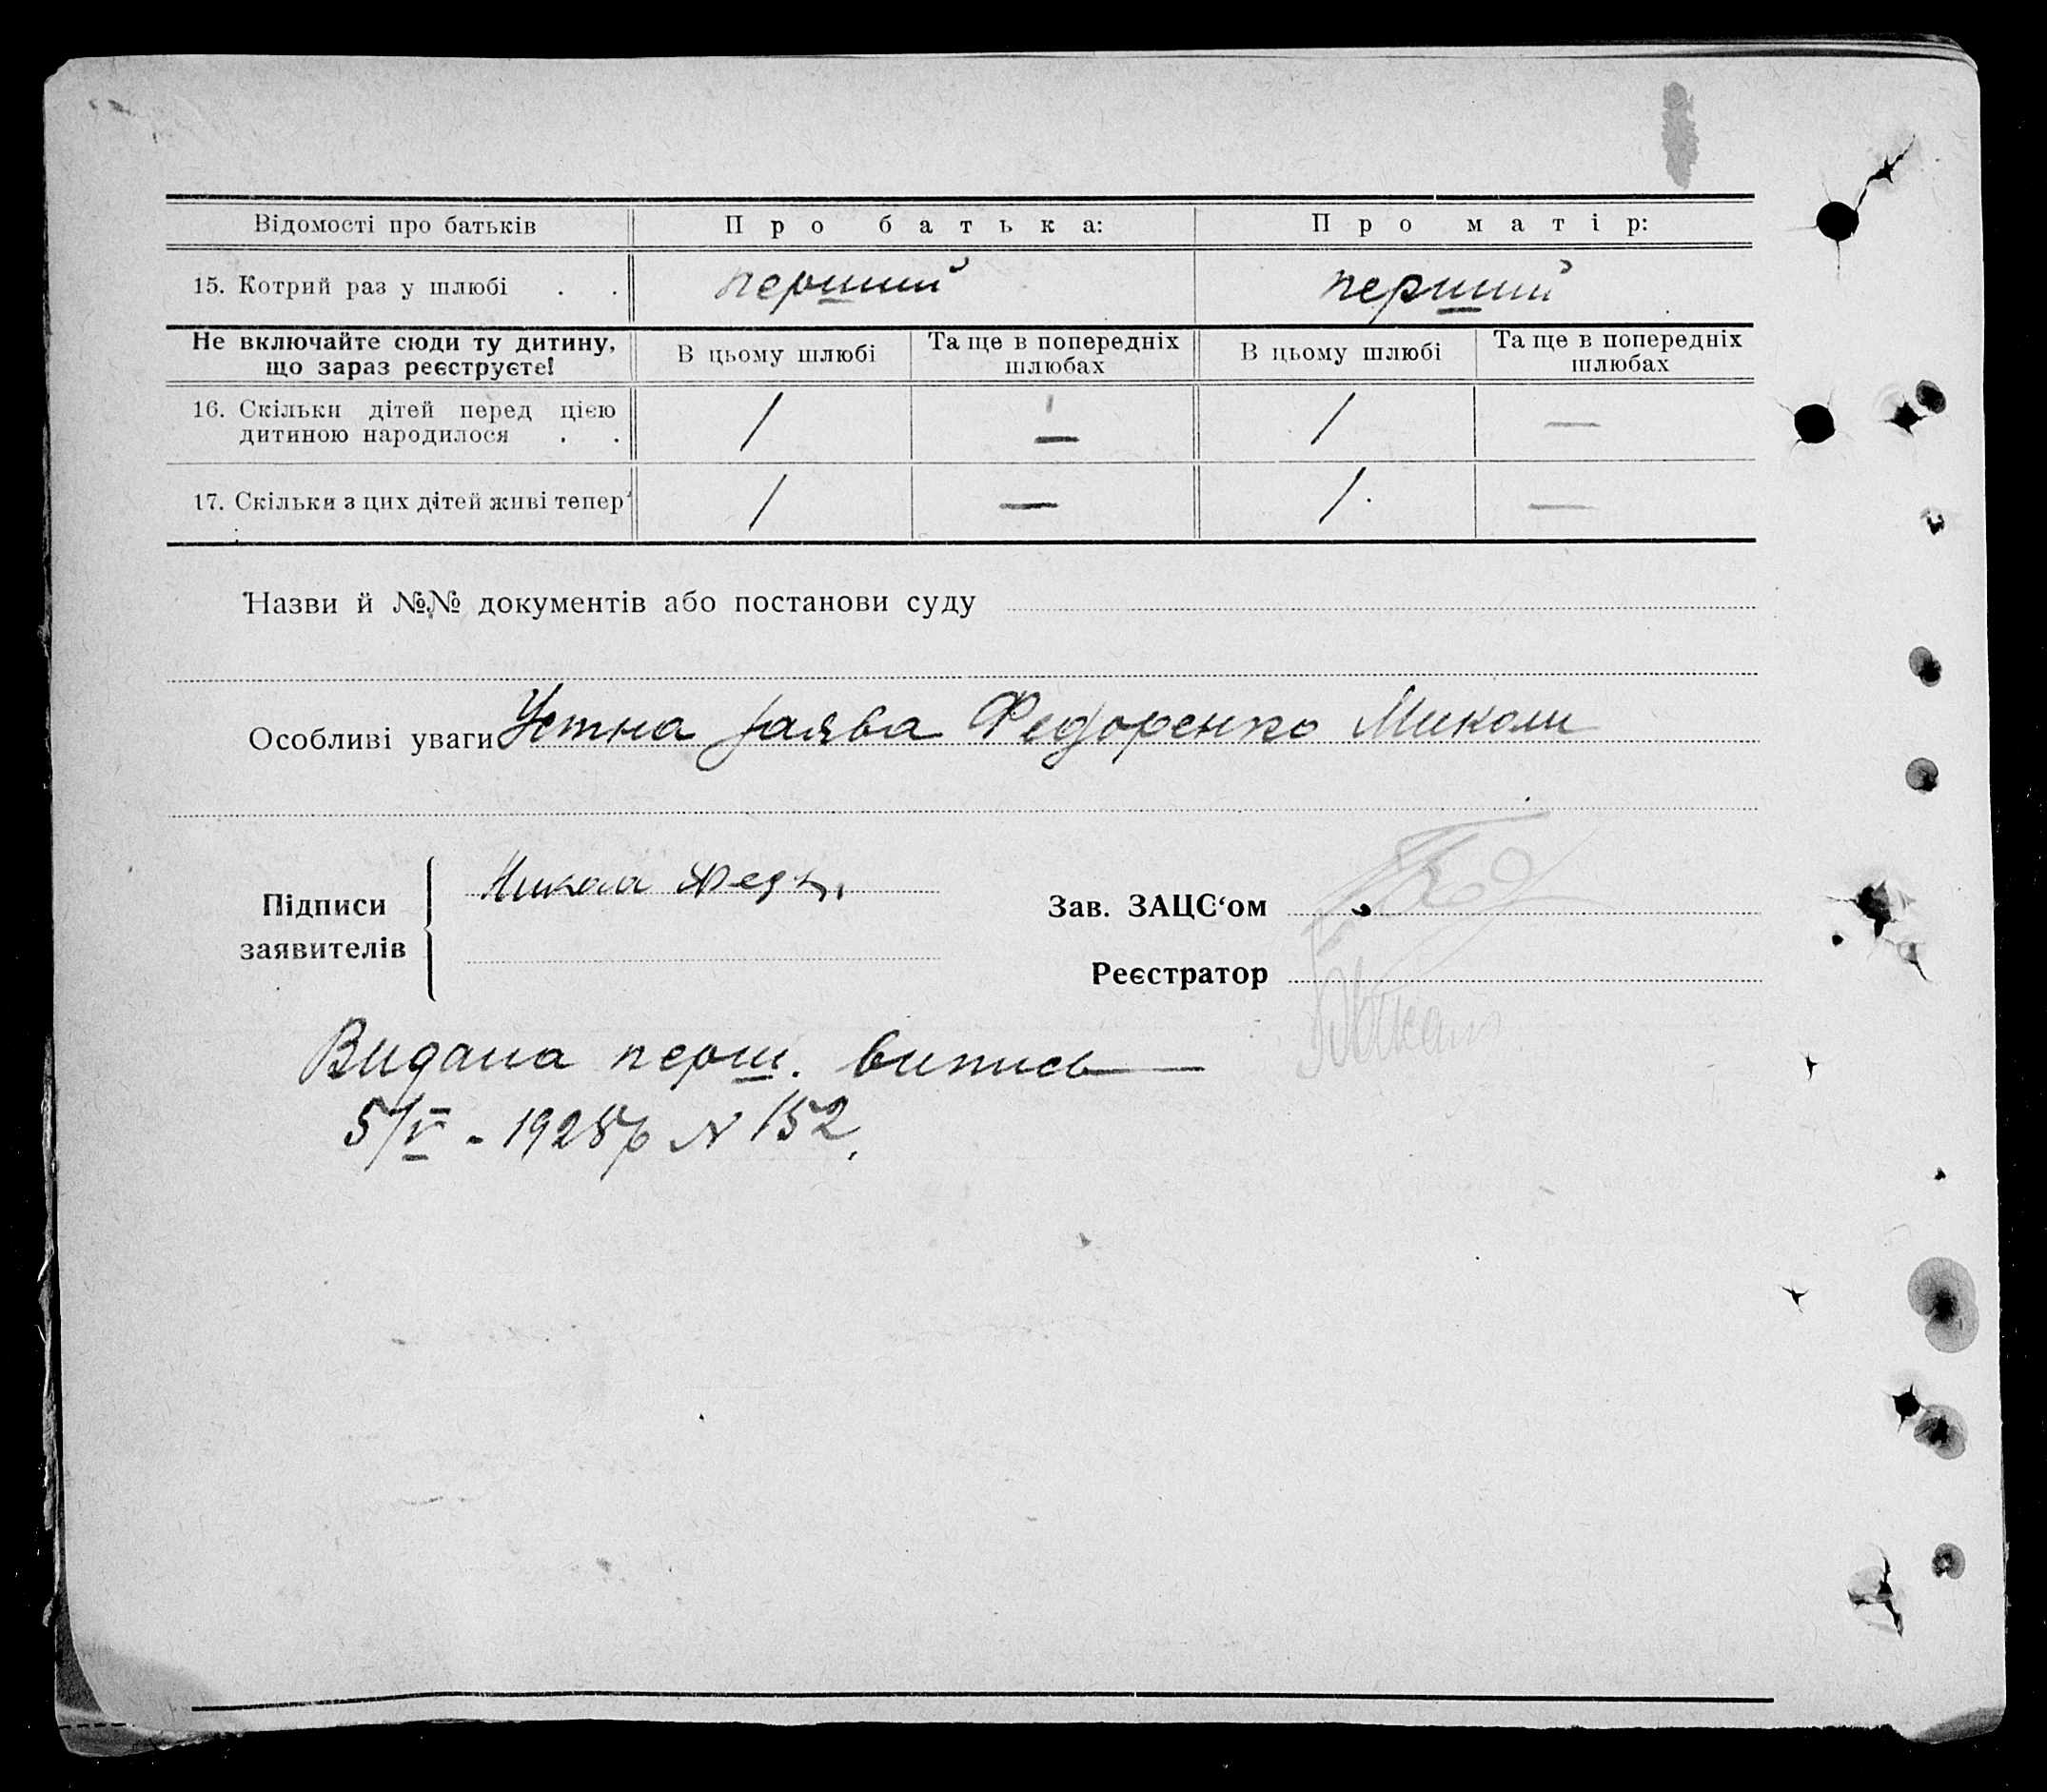 Відомості про батьків Про батька: Про матір:
15. Котрий раз у шлюбі . . перший перший
Не включайте сюди ту дитину, що зараз реєструєте! В цьому шлюбі Та ще в попередніх шлюбах В цьому шлюбі Та ще в попередніх шлюбах
16. Скільки дітей перед цією дитиною народилося . . 1 — 1 —
17. Скільки з цих дітей живі тепер 1 — 1 —
Назви й №№ документів або постанови суду
Особливі уваги Устна заява Федоренко Миколи
Підписи заявителів Микола
Зав. ЗАЦС‘ом
Реєстратор
Видана перш. випись
5/V - 1928р N 152.